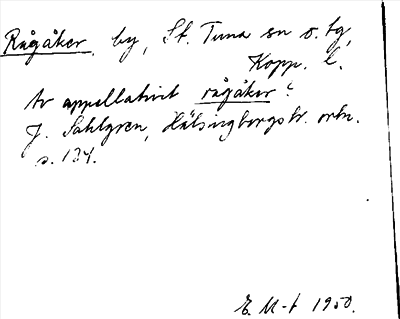 Rågåker, by, St. Tuna sn o. tg,
Kopp. l.
Av appellativet rågåker?
J. Sahlgren, Hälsingborgstr. ortn.
s. 124.
E. M-t 1950.